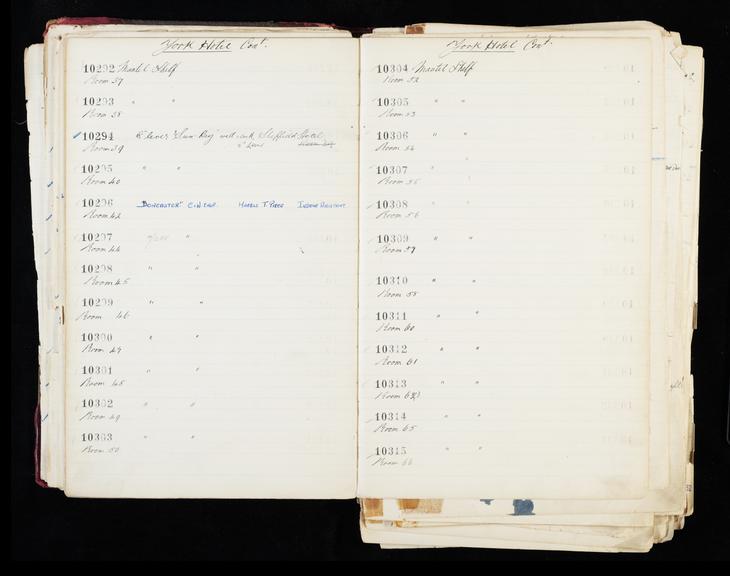 York Hotel Cont.
10292 Mantel Shelf
Room 37
10293 " "
Room 38
10294
Room 39
10295 " "
Room 40
10296 "DONCASTER"
Room 42
10297 "
Room 44
10298 " "
Room 45
10299 " "
Room 46
10300 " "
Room 47
10301 " "
Room 48
10302 " "
Room 49
10303 " "
Room 50
York Hotel Cont.
10304 Mantel Shelf
Room 52
10305 " "
Room 53
10306 " "
Room 54
10307 " "
Room 55
10308 " "
Room 56
10309 " "
Room 57
10310 " "
Room 58
10311 " "
Room 60
10312 " "
Room 61
10313 " "
Room
10314 " "
Room 65
10315 " "
Room 66